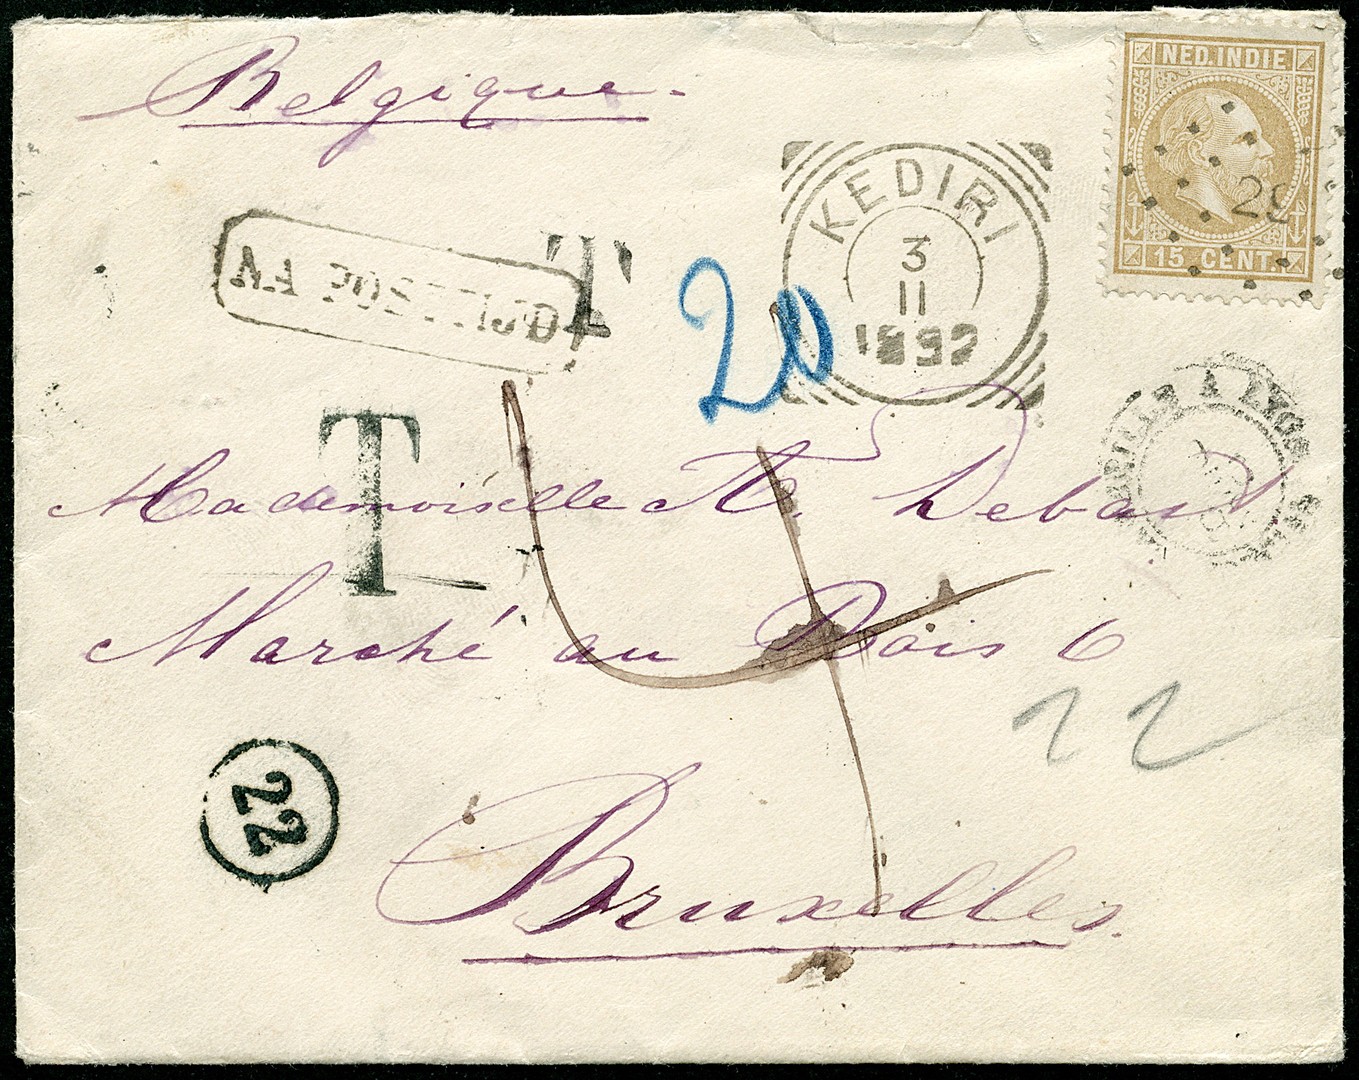 Belgique.
NED. INDIE
29
15 CENT.
KEDIRI
3
11
1892
NA POSTTIJD
T
20
MARSEILLE A LYON
T
Mademoiselle
Marché au Bois 6
22
22
Bruxelles.